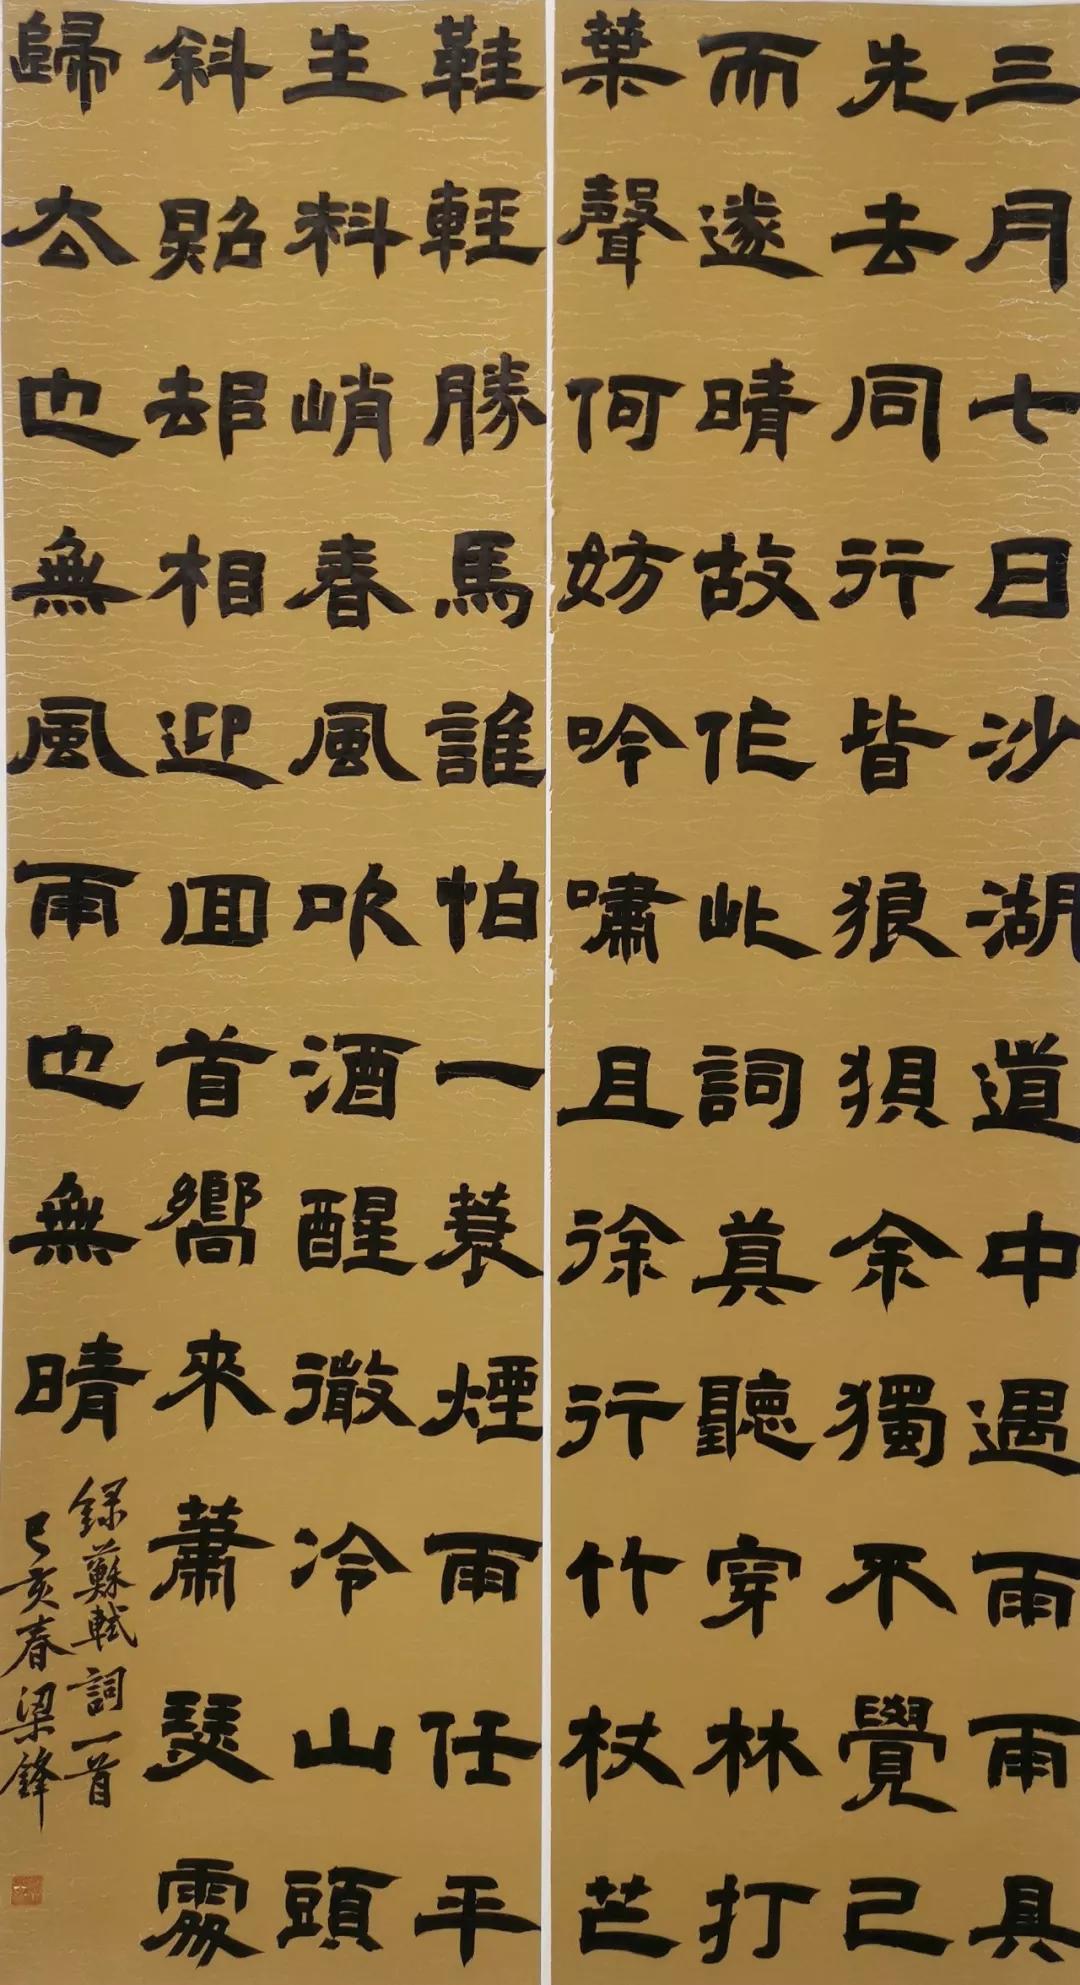 三月七日沙湖道中遇雨雨具
先去同行皆狼狽余獨不覺已
而遂晴故作此詞莫聽穿林打
葉聲何妨吟嘯且徐行竹杖芒
鞋輕勝馬誰怕一蓑煙雨任平
生料峭春風吹酒醒微冷山頭
斜照却相迎回首嚮來蕭瑟處
歸去也無風雨也無晴
錄蘇軾詞一首
己亥春梁鋒